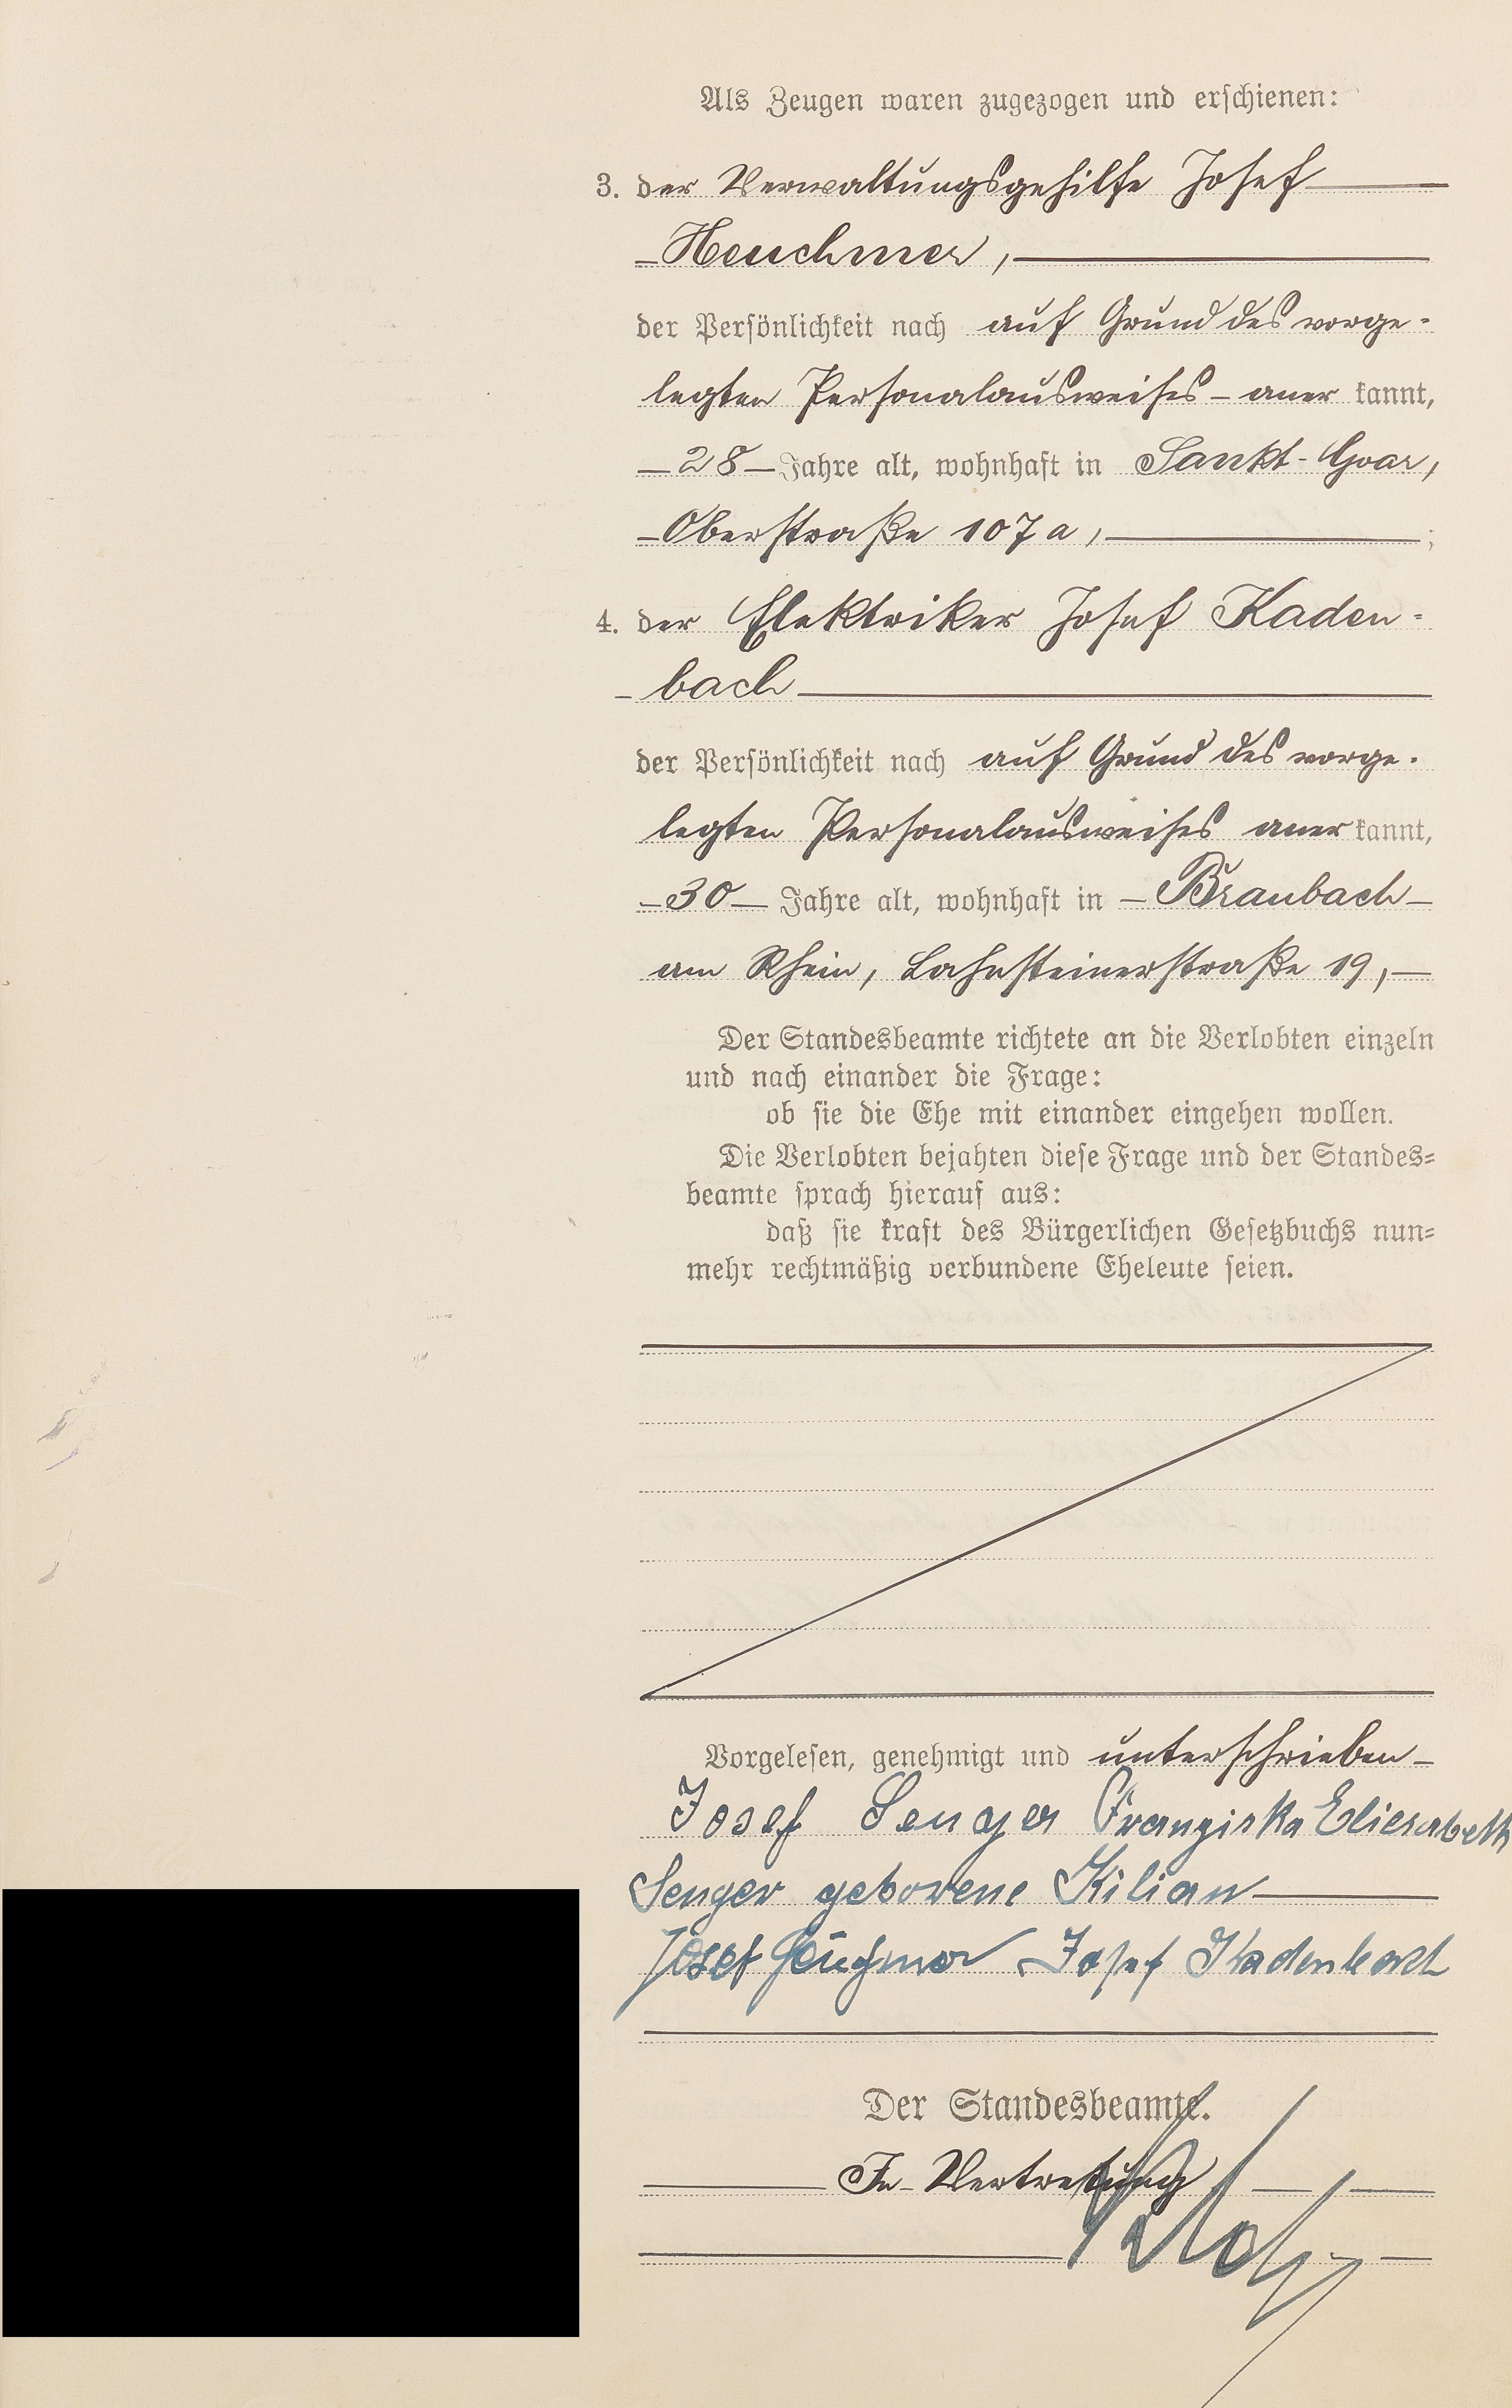 Als Zeugen waren zugezogen und erschienen:
3. der Verwaltungsgehilfe Josef
Heuchmer,
der Persönlichkeit nach auf Grund des vorge-
legten Personalausweises - aner kannt,
28 Jahre alt, wohnhaft in Sankt-Goar,
Oberstraße 107a, ;
4. der Elektriker Josef Kaden-
bach
der Persönlichkeit nach auf Grund des vorge-
legten Personalausweises aner kannt,
30 Jahre alt, wohnhaft in Braubach
am Rhein, Lahnsteinerstraße 19,
Der Standesbeamte richtete an die Verlobten einzeln
und nach einander die Frage:
ob sie die Ehe mit einander eingehen wollen.
Die Verlobten bejahten diese Frage und der Standes-
beamte sprach hierauf aus:
daß sie kraft des Bürgerlichen Gesetzbuchs nun-
mehr rechtmäßig verbundene Eheleute seien.
Vorgelesen, genehmigt und unterschrieben
Josef Senger Franziska Eliesabeth
Senger geborene Kilian
Josef Heuchmer Josef Kadenbach
Der Standesbeamte.
In Vertretung